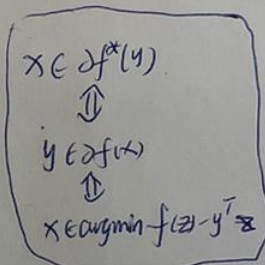 x ∈ ∂f*(y)
⇕
y ∈ ∂f(x)
⇕
x ∈ argmin f(z) - yᵀz